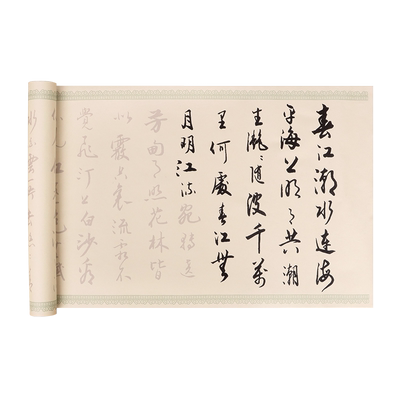 春江潮水連海
平海上明月共潮
生灧〻隨波千萬
里何處春江無
月明江流宛轉遶
芳甸月照花林皆
似霰空裏流霜不
覺飛汀上白沙看